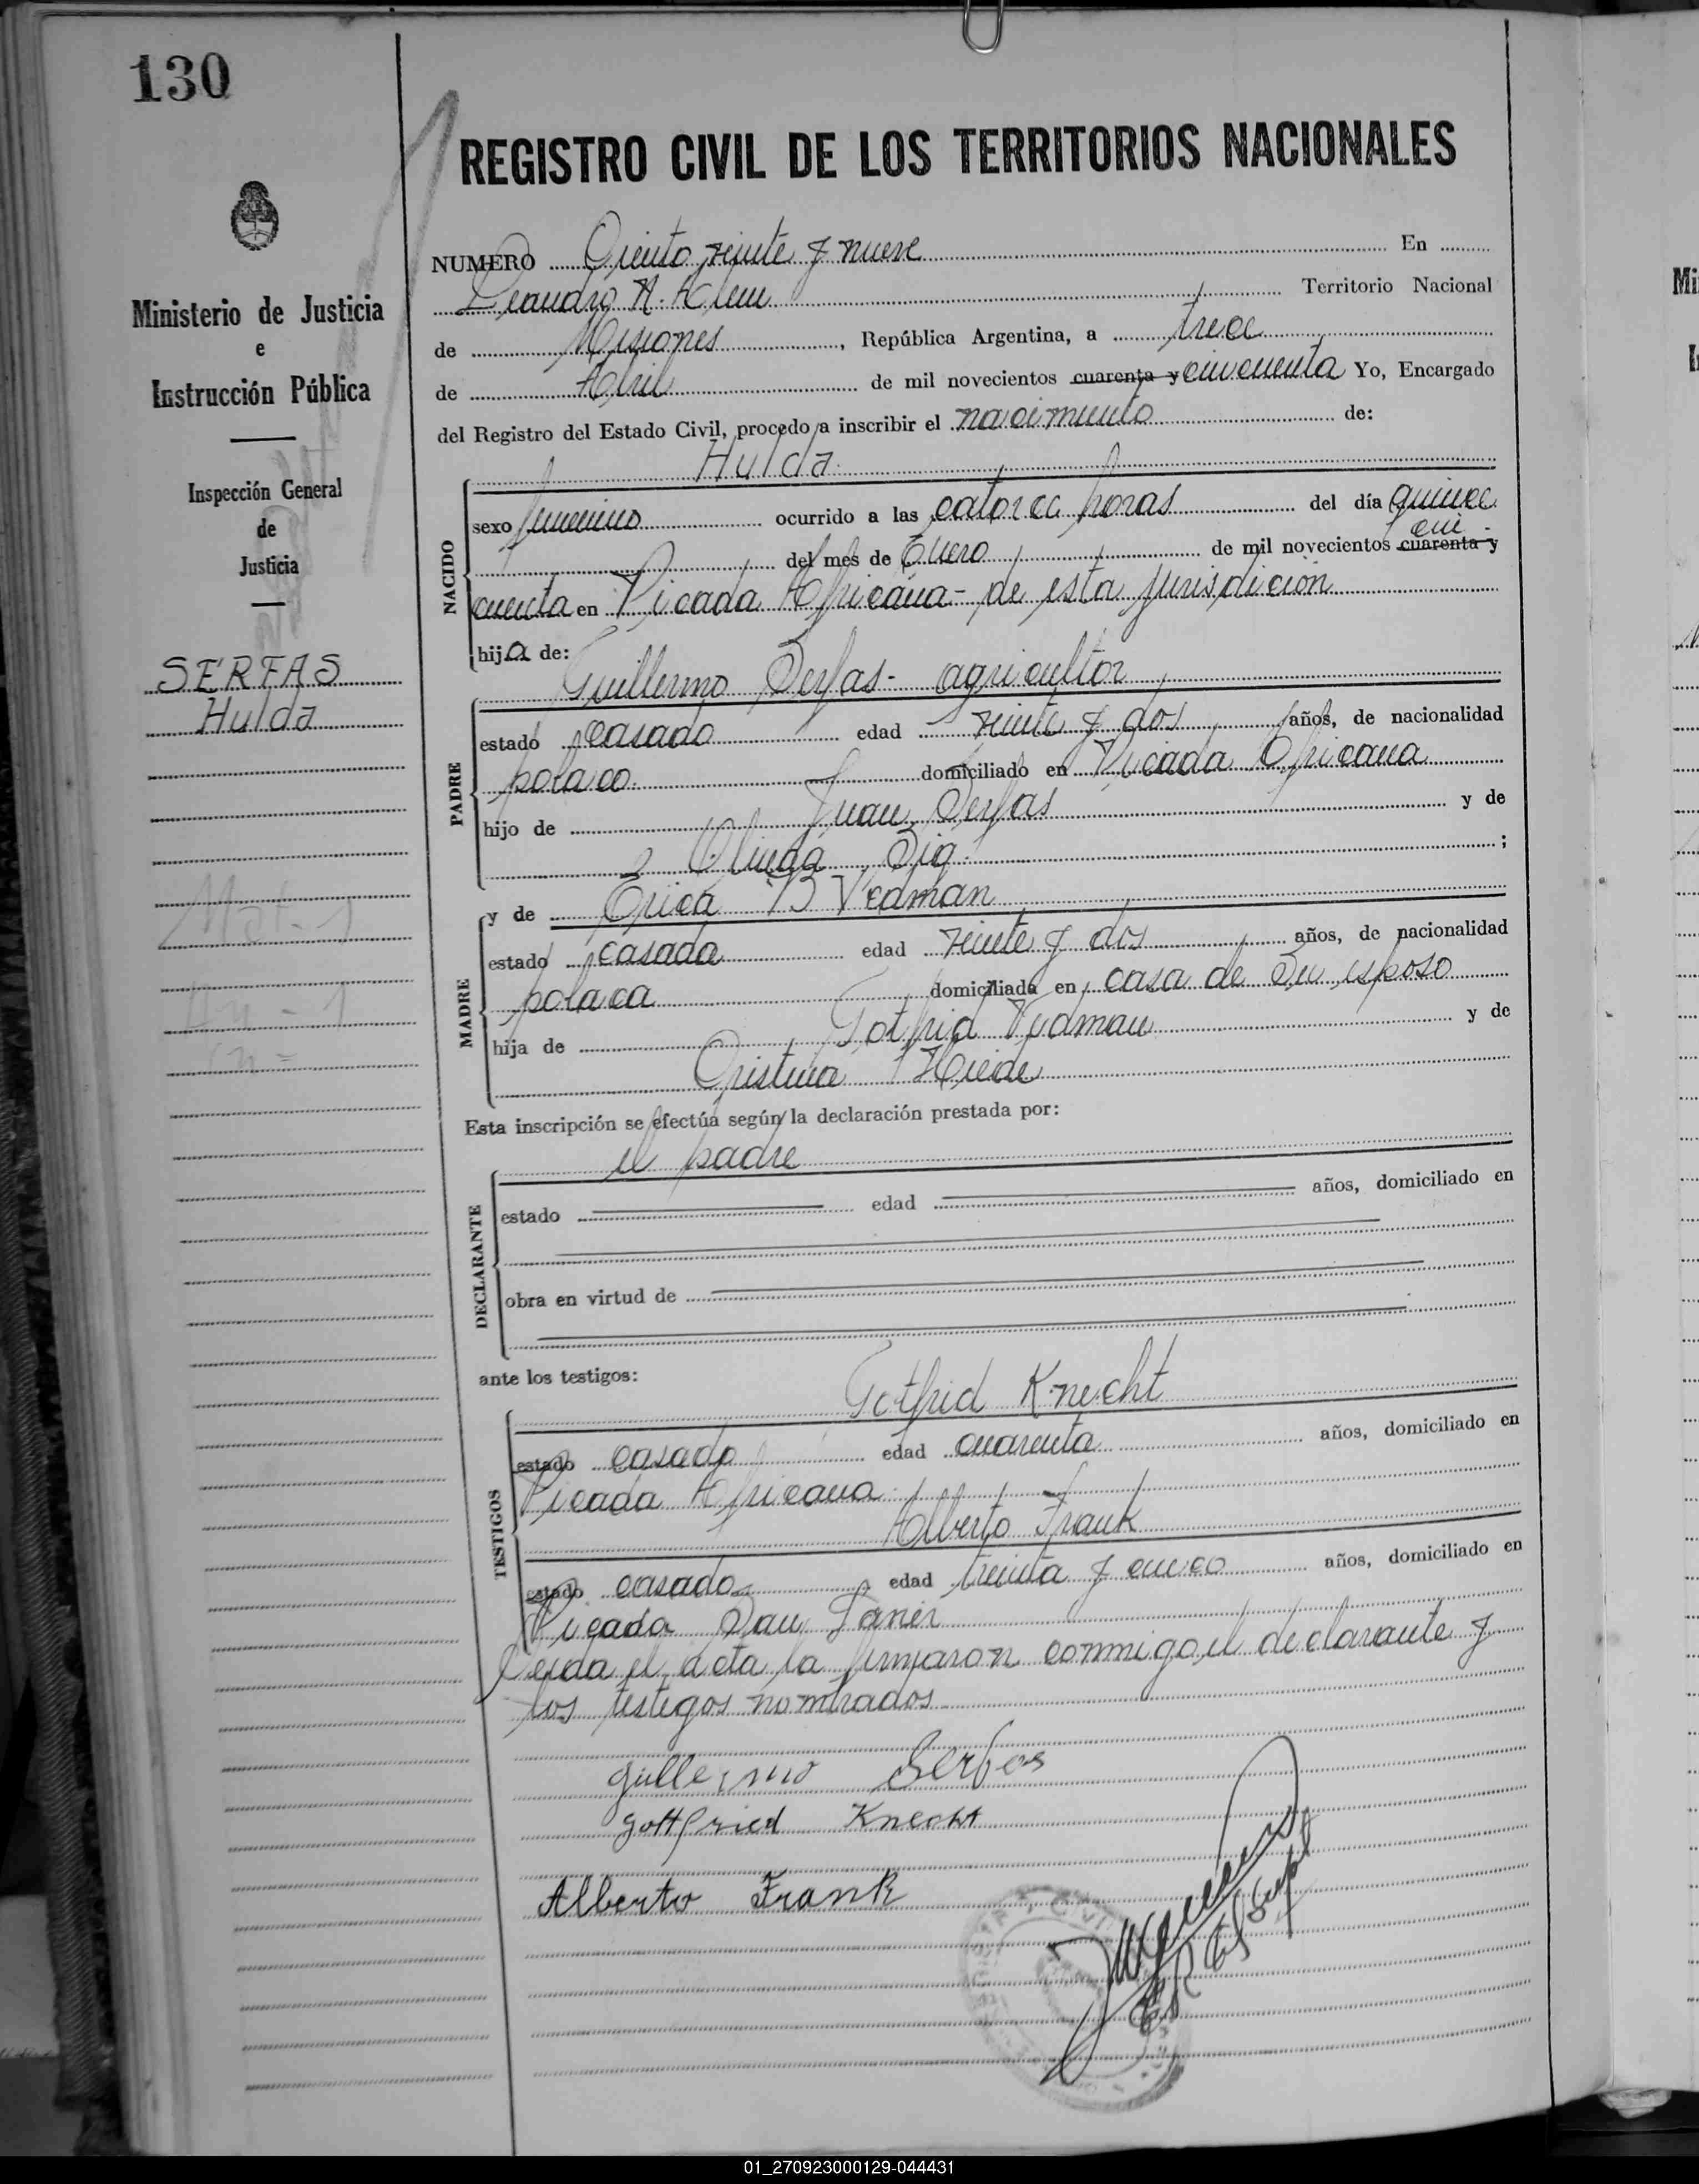 130
REGISTRO CIVIL DE LOS TERRITORIOS NACIONALES
Ministerio de Justicia
e
Instrucción Pública
Inspección General
de
Justicia
SERFAS
Hulda
NUMERO Ciento veinte y nueve En
Leandro N. Alem Territorio Nacional
de Misiones, República Argentina, a trece
de Abril de mil novecientos cuarenta y cincuenta Yo, Encargado
del Registro del Estado Civil, procedo a inscribir el nacimiento de:
Hulda
NACIDO
sexo femenino ocurrido a las catorce horas del día quince
del mes de Enero de mil novecientos cuarenta y cin
cuenta en Picada Africana - de esta jurisdicion
hija de:
Guillermo Serfas - agricultor
PADRE
estado casado edad veinte y dos años, de nacionalidad
polaco domiciliado en Picada Africana
hijo de Juan Serfas y de
Olinda Sig ;
y de Erica B Vedman
MADRE
estado casada edad veinte y dos años, de nacionalidad
polaca domiciliada en casa de su esposo
hija de Gotfrid Vedman y de
Cristina
Esta inscripción se efectúa según la declaración prestada por:
el padre
DECLARANTE
estado edad años, domiciliado en
obra en virtud de
ante los testigos:
Gotfrid Knecht
TESTIGOS
estado casado edad cuarenta años, domiciliado en
Picada Africana
Alberto Frank
estado casado edad treinta y cinco años, domiciliado en
Picada San Javier
Leida el acta la firmaron conmigo el declarante y
los testigos nombrados
Guillermo Serfas
Gottfried Knecht
Alberto Frank
01_270923000129-044431